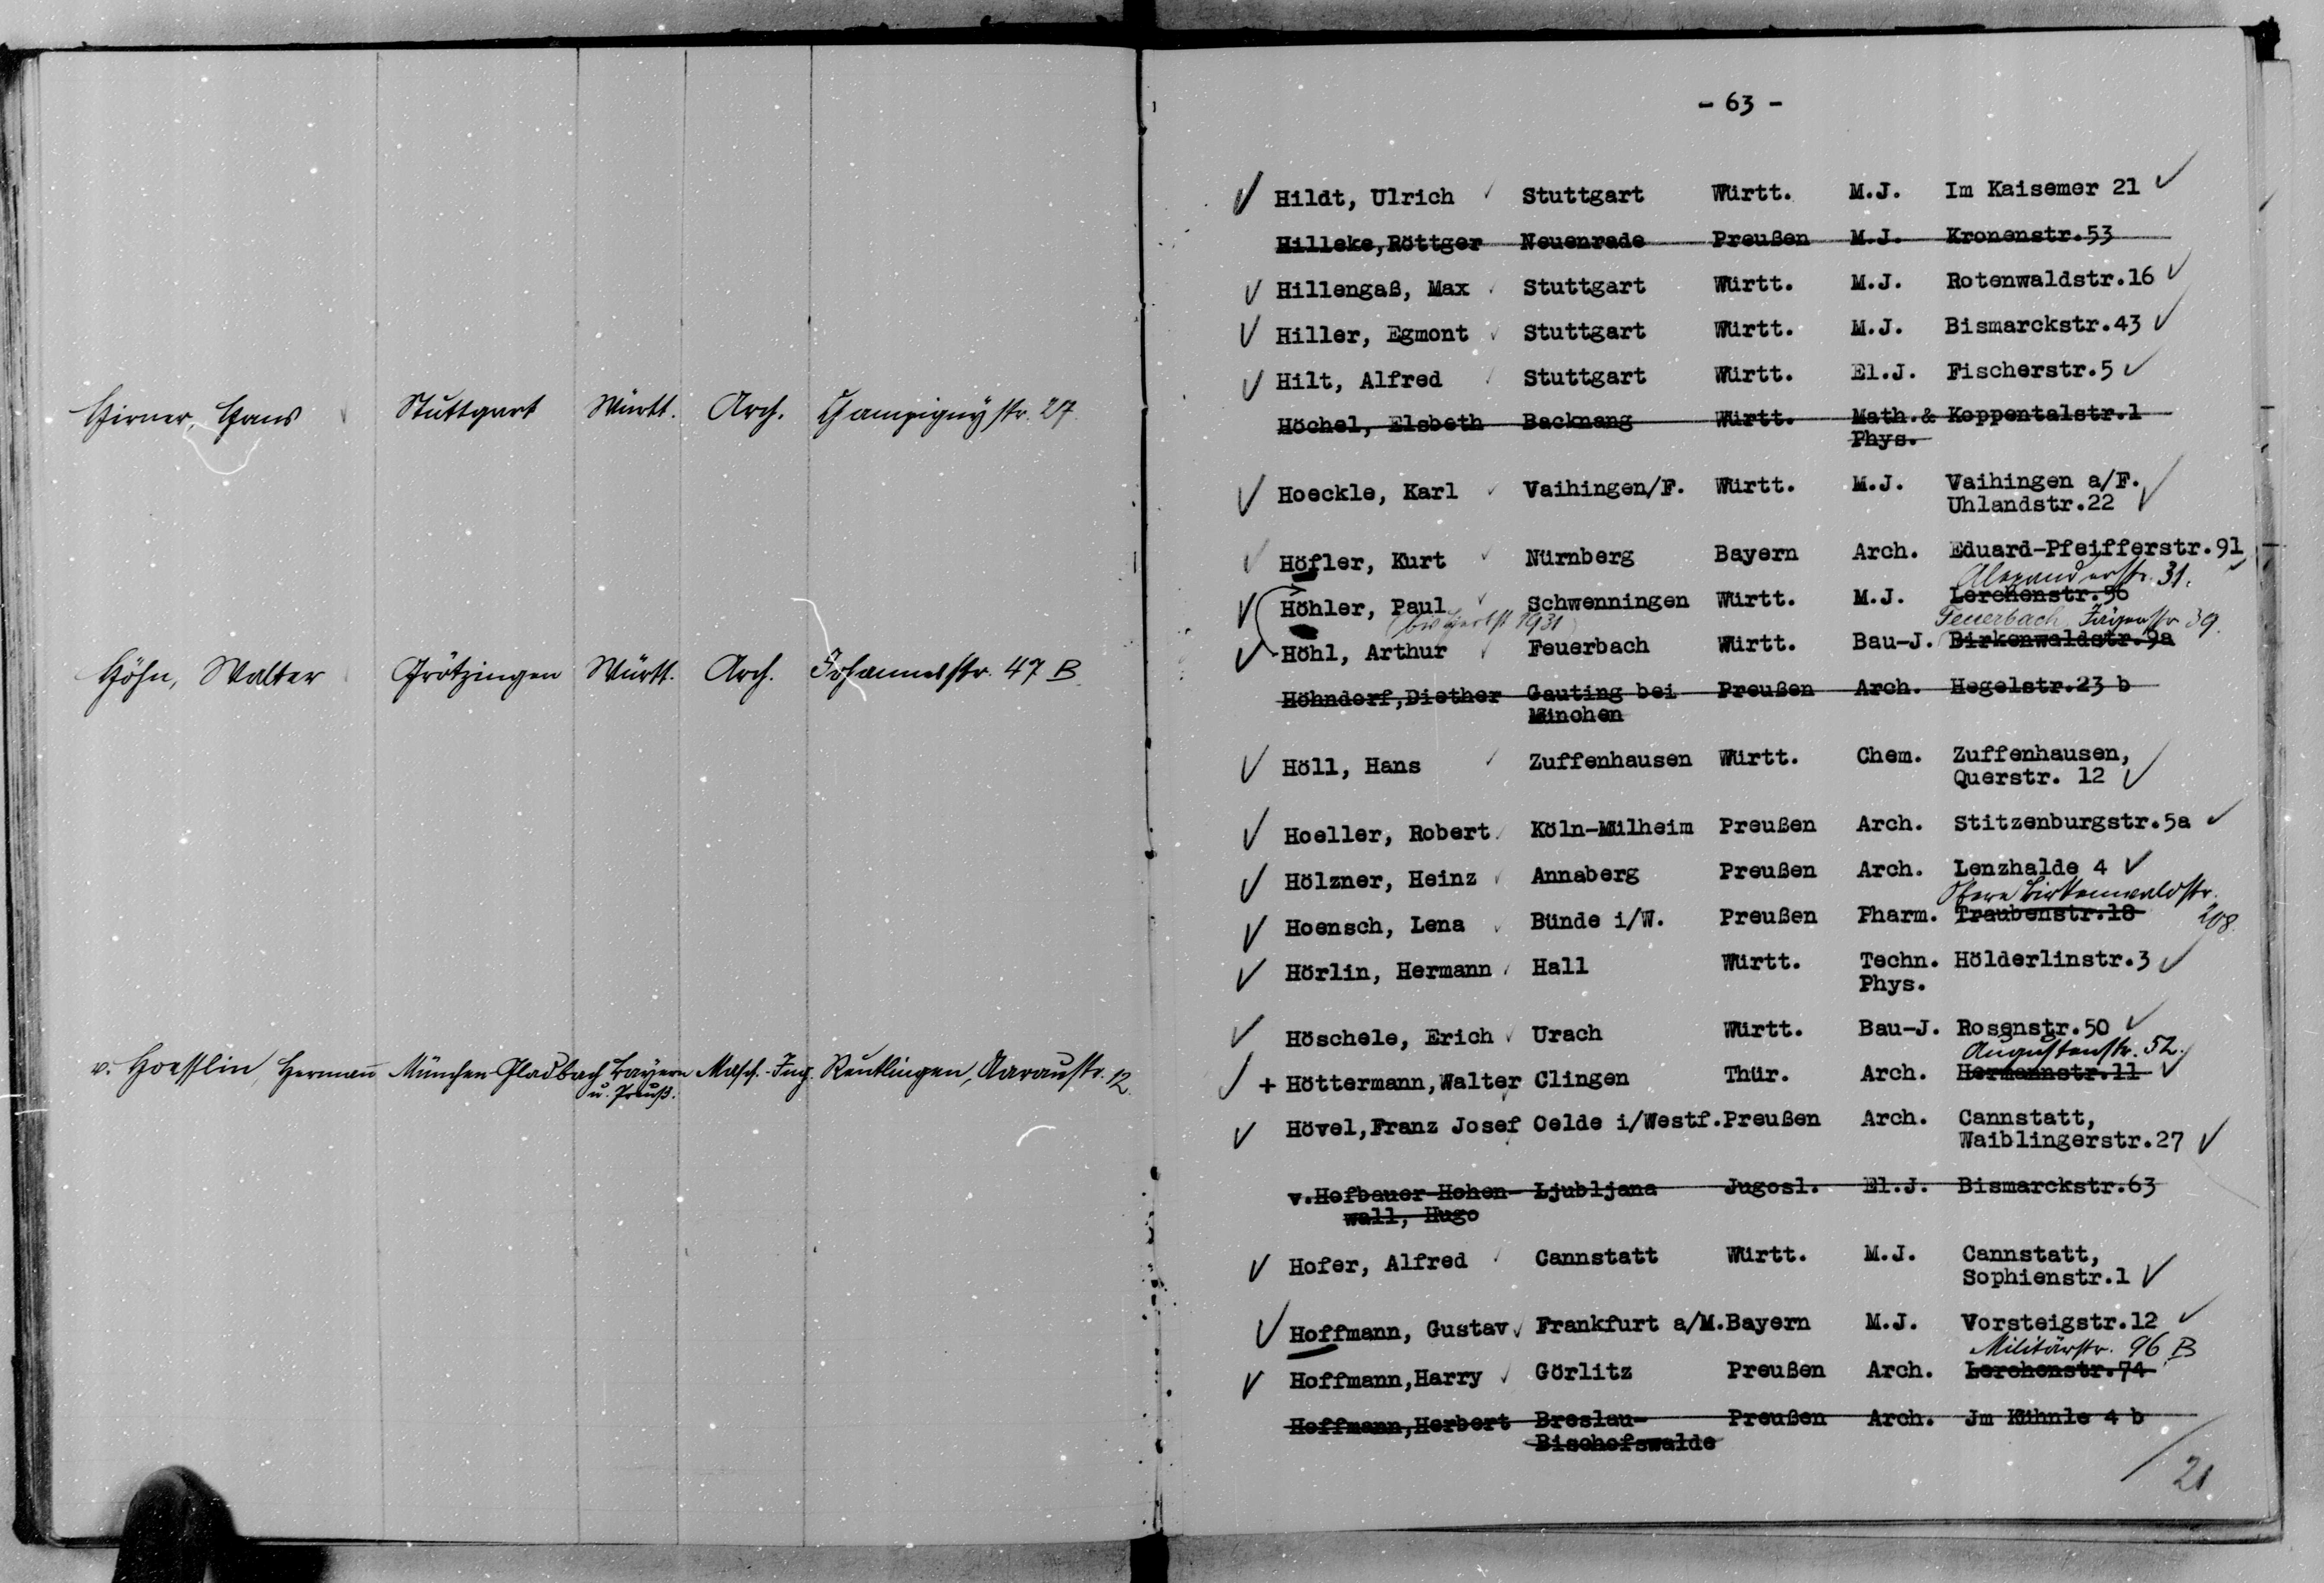 Hirner, Hans Stuttgart Württ. Arch. Champignystr. 27.
Höhn, Walter Grötzingen Württ. Arch. Johannesstr. 47 B
v. Hoesslin, Hermann München-Gladbach Bayern Masch.-Ing. Reutlingen, Aaraustr. 12.
u. Preuß.
- 63 -
Hildt, Ulrich Stuttgart Württ. M.J. Im Kaisemer 21
Hilleke,Röttger Neuenrade Preußen M.J. Kronenstr.53
Hillengaß, Max Stuttgart Württ. M.J. Rotenwaldstr.16
Hiller, Egmont Stuttgart Württ. M.J. Bismarckstr.43
Hilt, Alfred Stuttgart Württ. El.J. Fischerstr.5
Höchel, Elsbeth Backnang Württ. Math.& Koppentalstr.1
Phys.
Hoeckle, Karl Vaihingen/F. Württ. M.J. Vaihingen a/F.
Uhlandstr.22
Höfler, Kurt Nürnberg Bayern Arch. Eduard-Pfeifferstr.91
Alexanderstr. 31.
Höhler, Paul Schwenningen Württ. M.J. Lerchenstr.56
(bis Herbst 1931) Feuerbach, Jägerstr. 39.
Höhl, Arthur Feuerbach Württ. Bau-J. Birkenwaldstr.9a
Höhndorf,Diether Gauting bei Preußen Arch. Hegelstr.23 b
München
Höll, Hans Zuffenhausen Württ. Chem. Zuffenhausen,
Querstr. 12
Hoeller, Robert Köln-Mülheim Preußen Arch. Stitzenburgstr.5a
Hölzner, Heinz Annaberg Preußen Arch. Lenzhalde 4
Obere Birkenwaldstr.
208.
Hoensch, Lena Bünde i/W. Preußen Pharm. Traubenstr.18
Hörlin, Hermann Hall Württ. Techn. Hölderlinstr.3
Phys.
Höschele, Erich Urach Württ. Bau-J. Rosenstr.50
Augustenstr. 52.
+ Höttermann,Walter Clingen Thür. Arch. Hermannstr.11
Hövel,Franz Josef Oelde i/Westf.Preußen Arch. Cannstatt,
Waiblingerstr.27
v.Hofbauer-Hohen- Ljubljana Jugosl. El.J. Bismarckstr.63
wall, Hugo
Hofer, Alfred Cannstatt Württ. M.J. Cannstatt,
Sophienstr.1
Hoffmann, Gustav Frankfurt a/M.Bayern M.J. Vorsteigstr.12
Militärstr. 96 B
Hoffmann,Harry Görlitz Preußen Arch. Lerchenstr.74
Hoffmann,Herbert Breslau- Preußen Arch. Jm Kühnle 4 b
Bischofswalde
21